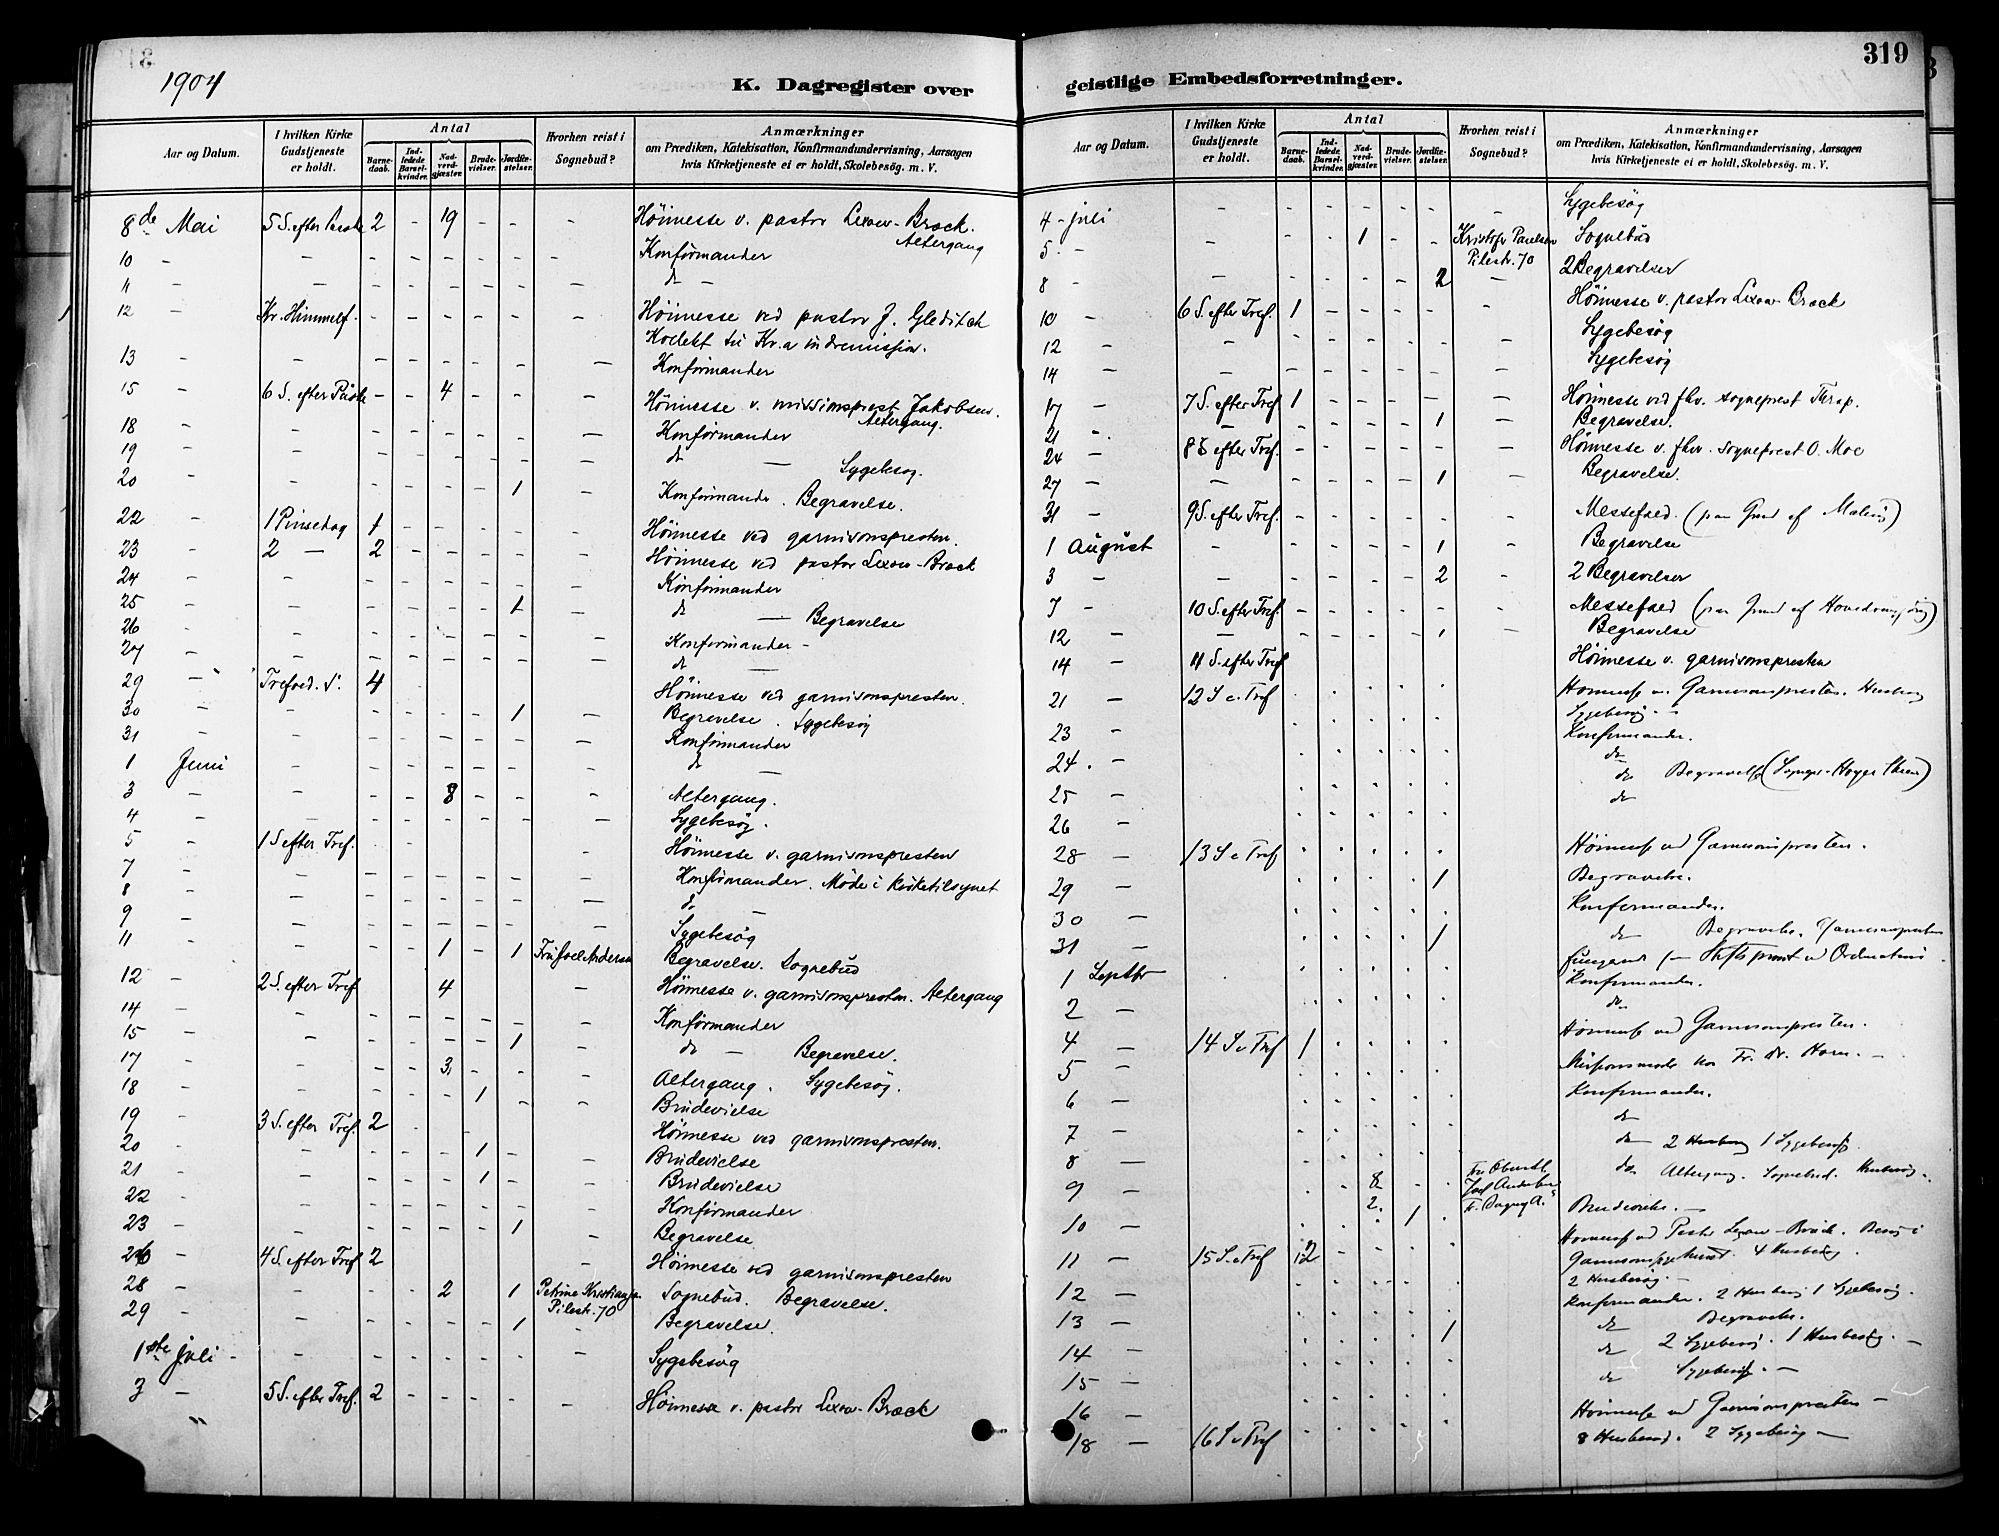 1904
K. Dagregister over
Aar og Datum. | I hvilken Kirke Gudstjeneste er holdt. | Antal | Barnedaab. | Indledede Barselkvinder. | Nadverdgjæster. | Brudevielser. | Jordfæstelser. | Hvorhen reist i Sognebud? | Anmærkninger om Prædiken, Katekisation, Konfirmandundervisning, Aarsagen hvis Kirketjeneste ei er holdt, Skolebesög. m. V.
8de Mai 5 S. efter Paaske 2 - 19 - - - Höimesse v. pastor Lexow-Brock. Altergang
10 - - - - - - - - Konfirmander
11 - - - - - - - - do -
12 - Kr. Himmelf. - - - - - - Höimesse ved pastor J. Gleditsch
Kollekt til Kr.a indremission.
13 - - - - - - - - Konfirmander
15 - 6 S. efter Paaske - - 4 - - - Höimesse v. missionsprest Jakobsen. Altergang.
18 - - - - - - - - Konfirmander
19 - - - - - - - - do - Sygebesög.
20 - - - - - - 1 - Konfirmander. Begravelse.
22 - 1 Pinsedag 1 - - - - - Höimesse ved garnisonspresten.
23 - 2 - 2 - - - - - Höimesse ved pastor Lexow-Brock
24 - - - - - - - - Konfirmander
25 - - - - - - 1 - do - Begravelse
26 - - - - - - - - Konfirmander -
27 - - - - - - - - do -
29 - Trefoed. S. 4 Höimesse ved garnisonspresten.
30 - - - - - - 1 - Begravelse. Sygebesög
31 - - - - - - - - Konfirmander
1 Juni - - - - - - - do -
3 - - - - 8 - - - Altergang.
4 - - - - - - - - Sygebesög.
5 - 1 S efter Tref. - Höimesse v. garnisonspresten
7 - - - - - - - - Konfirmander. Möde i kirketilsynet
8 - - - - - - - - do -
9 - - - - - - - Sygebesög
11 - - - - 1 - 1 Fru Joel Andersen Begravelse. Sognebud
12 - 2 S. efter Tref. 4 - Höimesse v. garnisonspresten. Altergang
14 - - - - - - - - Konfirmander
15 - - - - - - 1 - do - Begravelse.
17 - - - 3 - - - Altergang. Sygebesög.
18 - - - - 1 - - Brudevielse
19 - 3 S. efter Tref. 2 Höimesse ved garnisonspresten.
20 - - - - - 1 - - Brudevielse
21 - - - - - 1 - - Brudevielse
22 - - - - - - - - Konfirmander
23 - - - - - - 1 - Begravelse
26 - 4 S. efter Tref 2 - Höimesse ved garnisonspresten
28 - - - - 2 - 1 Petrine Kristiansen Pilestr. 70 Sognebud. Begravelse.
29 - - - - - - 1 - Begravelse.
1ste juli - - - - - - - Sygebesög
3 - 5 S. efter Tref. 2 - - - - - Höimesse v. pastor Lexow-Brock
319
geistlige Embedsforretninger.
Aar og Datum. | I hvilken Kirke Gudstjeneste er holdt. | Antal | Barnedaab. | Indledede Barselkvinder. | Nadverdgjæster. | Brudevielser. | Jordfæstelser. | Hvorhen reist i Sognebud? | Anmærkninger om Prædiken, Katekisation, Konfirmandundervisning, Aarsagen hvis Kirketjeneste ei er holdt, Skolebesög. m. V.
4 - juli - - - - - - - Sygebesög
5 - - - - 1 - - Kristofr Paulsen Pilestr. 70 Sognebud
8 - - - - - - 2 - 2 Begravelser
10 - 6 S. efter Tref. 1 - - - - - Höimesse v. pastor Lexow-Brock
12 - - - - - - - - Sygebesög
14 - - - - - - - - Sygebesög
17 - 7 S. efter Tref. 1 - - - - - Höimesse ved fhv. sogneprest Thrap.
21 - - - - - - 1 - Begravelse.
24 - 8 S efter Tref. - - - - - - Höimesse v. fhv. sogneprest O. Moe
27 - - - - - - 1 - Begravelse.
31 - 9 S. efter Tref. - - - - - - Messefald. (paa Grund af Maling)
1 August - - - - - 1 - Begravelse
3 - - - - - - 2 - 2 Begravelser
7 - 10 S. efter Tref. - - - - - - Messefald (paa Grund af Hovedrengjöring)
12 - - - - - - 1 - Begravelse
14 - 11 S. efter Tref Höimesse v. garnisonspresten
21 - 12 S e Tref Höimesse ved Garnisonspresten. Husbesög
Sygebesög. -
23 - Konfirmander.
24. - do
do Begravelse
25 - do
26 -
28 - 13 S e Tref Höimesse ved Garnisonspresten.
29 - 1 Begravelse.
30 - Konfirmander.
31 - 1 do Begravelse. Garnisonspresten
fungerer for Stiftsprovst ved Ordination
1 Septbr Konfirmander.
2 - do
4 - 14 S e Tref 1 Höimesse ved Garnisonspresten.
5 - Missionsmøde hos Fr. Dr. Horn. -
6 - Konfirmander.
7 - do
8 - do 2 Husbesög 1 Sygebesög
9 - 8 2 Fru Oberstl. Joel Andersen Fr. Dagny A. do Altergang. Sognebud. Husbesög.
10 - 1 Brudevielse. -
11 - 15 S. e Tref 12 Höimesse ved Pastor Lexow-Brock. Besög i
4 Husbesög.
2 Husbesög. -
12 - Konfirmander. 2 Husbesög 1 Sygebesög.
13 - 1 do Begravelse.
14 - do 2 Sygebesög. 1 Husbesög. -
15 - do Sygebesög. -
16 -
18 - 16 S e Tref Höimesse ved Garnisonspresten -
8 Husbesög. 2 Sygebesög -